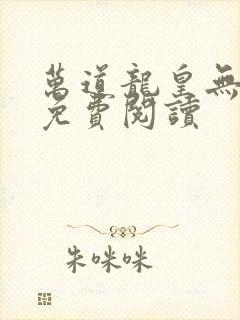 萬道龍皇無
免費閱讀
朱咪咪